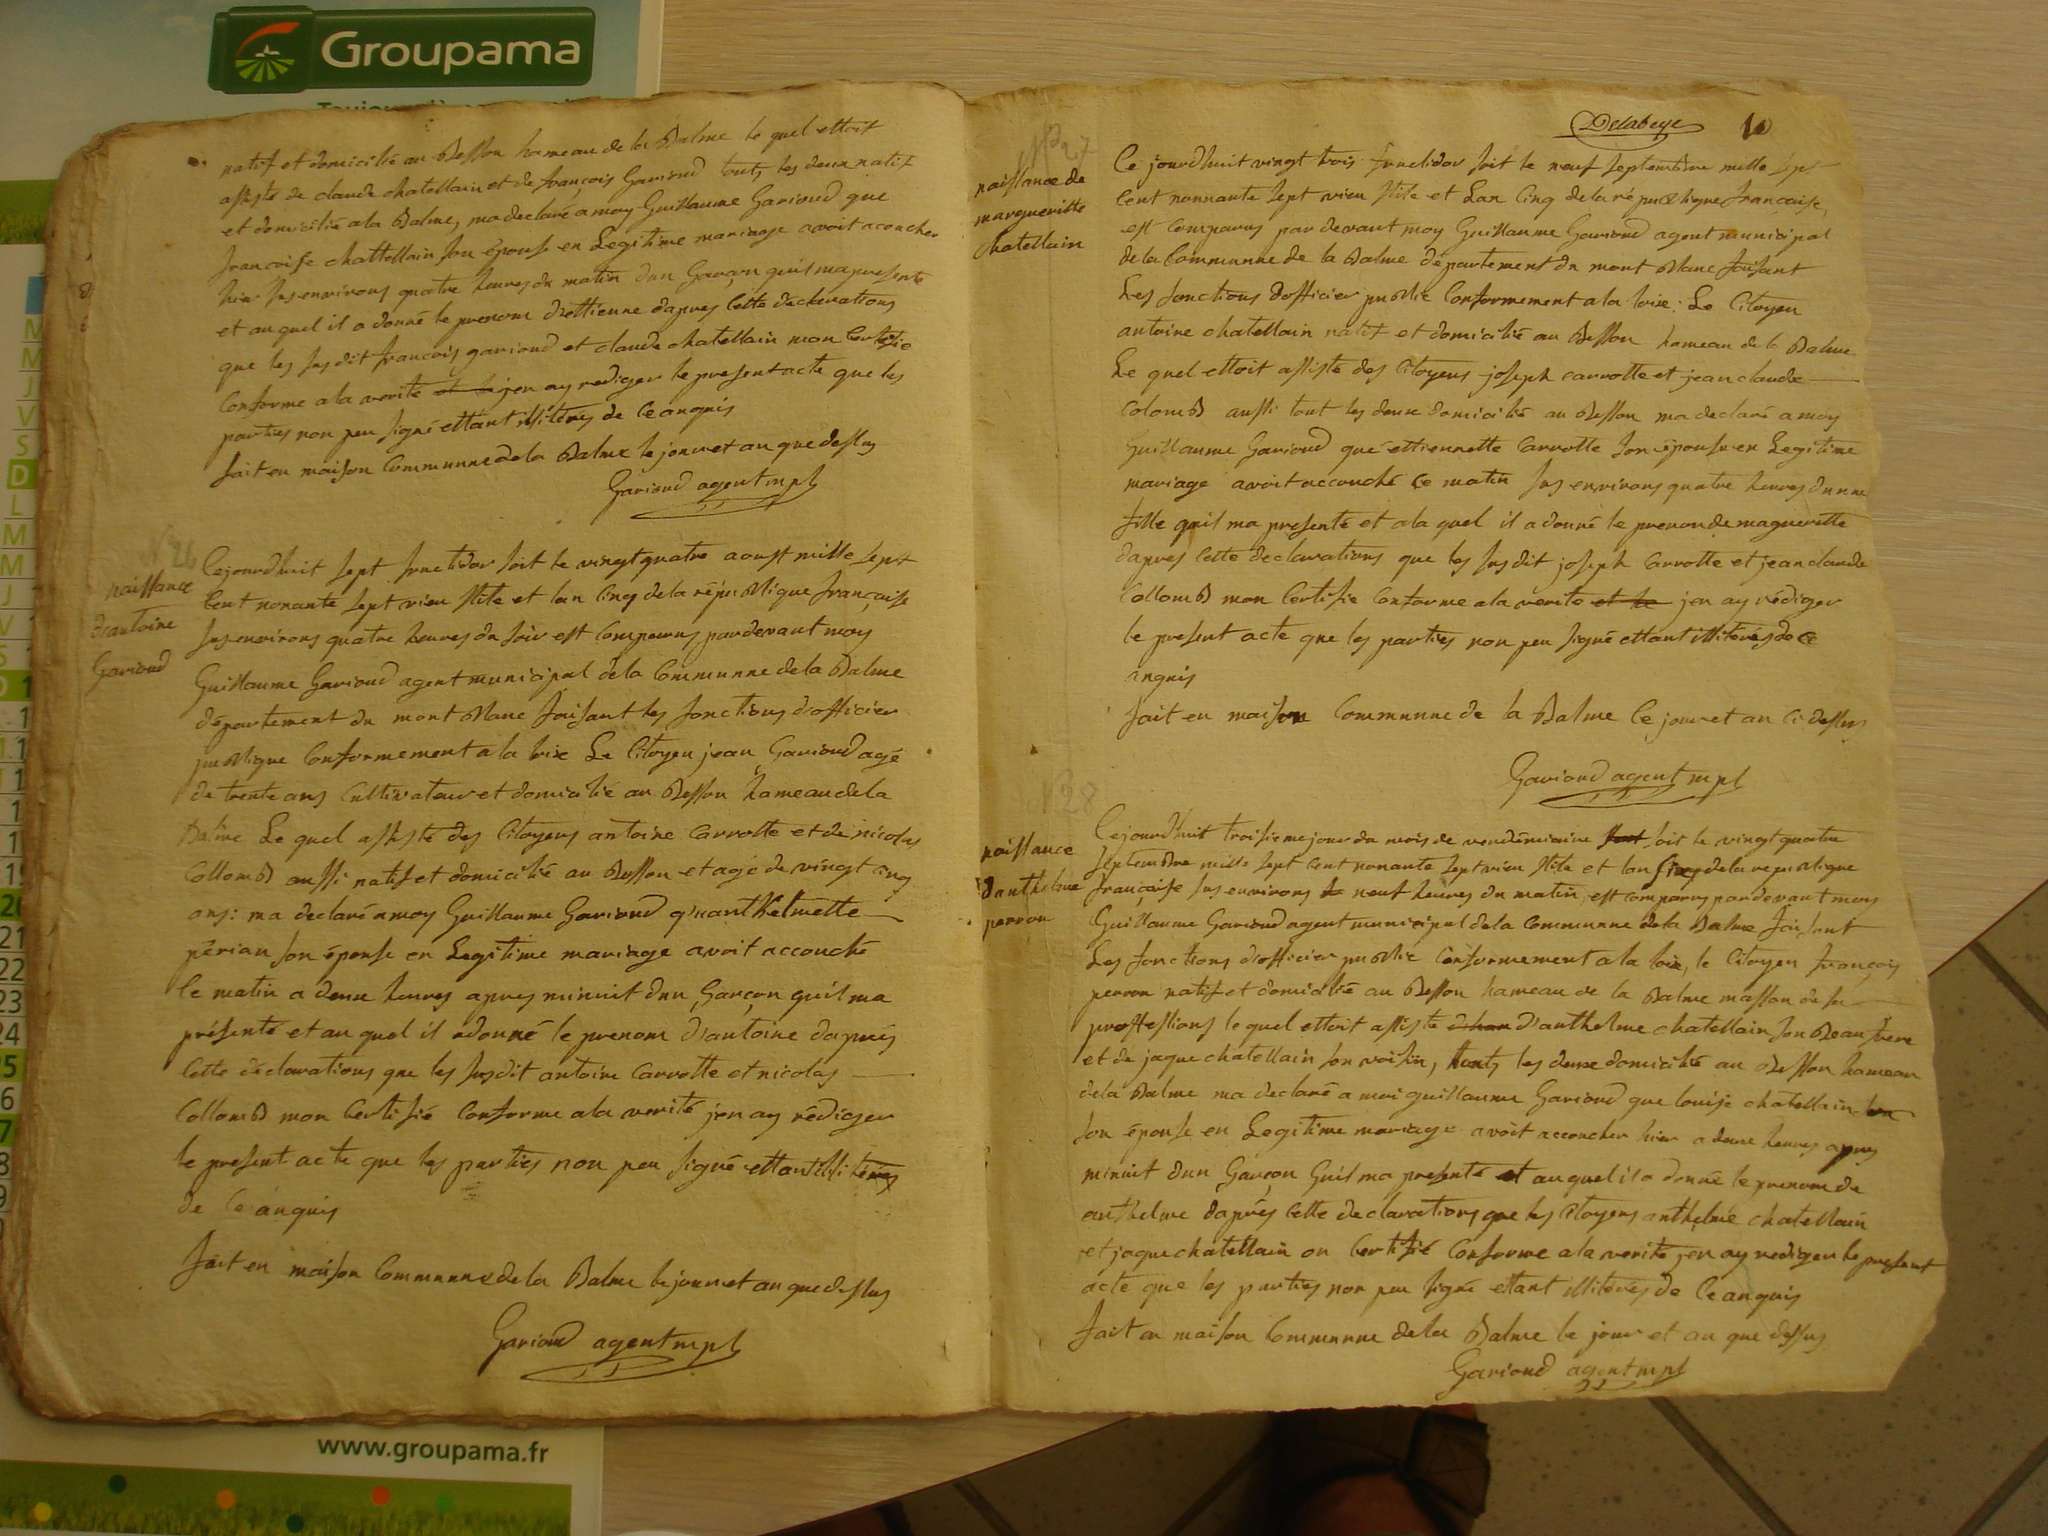 Groupama
natif et domicilié au Besson hameau de la Balme le quel ettoit
assisté de claude chatellain et de françois Garioud touts les deux natif
et domicilié a la Balme, ma declaré a moy Guillaume Garioud que
francoise chattellain son épouse en Legitime mariage avoit acoucher
hier sus environs quatre heures du matin dun Garçon quil ma presenté
et au quel il a donné le prenom d'ettienne dapres cette declarations
que les susdit francois garioud et claude chatellain mon certifié
conforme a la verité et le jen ay rediger le present acte que les
parties non peu signé ettant illiteres de ce anquis
fait en maison Communne de la Balme le jour et an que dessus
Garioud agent mpl
26
naissance
d'antoine
Garioud
Cejourdhuit sept fructidor soit le vingt quatre aoust mille sept
cent nonante sept vieu stile et lan cinq de la république française
sus environs quatre heures du soir est comparus pardevant moy
Guillaume Garioud agent municipal de la Communne de la Balme
département du mont Blanc faisant les fonctions d'officier
publique conformement a la loix Le Citoyen jean Garioud agé
de trente ans cultivateur et domicilié au Besson hameau de la
Balme Le quel assisté des Citoyens antoine Carrotte et de nicolas
Collomb aussi natif et domicilié au Besson et agé de vingt cinq
ans: ma declaré a moy Guillaume Garioud qu'anthelmette
périan son épouse en Legitime mariage avoit accouché
le matin a deux heures apres minuit dun Garçon quil ma
présenté et au quel il a donné le prenom d'antoine dapres
cette déclarations que les susdit antoine Carrotte et nicolas
Collomb mon certifié conforme a la verité jen ay rédiger
le present acte que les parties non peu signé ettant illitérés
de ce anquis
fait en maison Communne de la Balme le jour et an que dessus
Garioud agent mpl
Delabeye 10
27
naissance de
margueritte
chatellain
Ce jourdhuit vingt trois fructidor soit le neuf septembre mille sept
cent nonnante sept vieu stile et Lan Cinq de la république française,
est comparus par devant moy Guillaume Garioud agent municipal
de la Communne de la Balme département du mont Blanc faisant
Les fonctions dofficier public conformement a la loix: Le Citoyen
antoine chatellain natif et domicilié au Besson hameau de la Balme
Le quel ettoit assisté des Citoyens joseph carrotte et jean claude
Colomb aussi tout les deux domicilié au Besson ma declaré a moy
Guillaume Garioud que ettiennette Carrotte son épouse en Legitime
mariage avoit accouché ce matin sus environs quatre heures dunne
fille quil ma presenté et a la quel il a donné le prenon de maguerette
dapres cette declarations que les susdit joseph Carrotte et jean claude
Collomb mon certifie conforme a la verite et le jen ay rédiger
le present acte que les parties non peu signé ettant illiterés de ce
anquis
fait en maison Communne de la Balme le jour et an ci dessus
Garioud agent mpl
28
naissance
d'anthelme
perron
Cejourdhuit troisieme jour du mois de vendémiaire soit le vingt quatre
septembre mille sept cent nonante sept vieu stile et lan de la republique
française sus environs neuf heures du matin, est comparus pardevant moy
Guillaume Garioud agent municipal de la Communne de la Balme faisant
Les fonctions d'officier public conformement a la loix, le Citoyen françois
perron natif et domicilié au Besson hameau de la Balme masson de sa
proffestions le quel ettoit assisté d'anthelme chatellain son Beau frere
et de jaque chatellain son voisin, touts les deux domicilié au Besson hameau
de la Balme ma declaré a moi guillaume Garioud que louise chatellain
son épouse en Legitime mariage avoit accoucher hier a deux heures apres
minuit dun Garçon Quil ma presenté et auquel il a donné le prenom de
anthelme dapres cette declarations que les Citoyens anthelme chatellain
et jaque chatellain on certifié conforme a la verité jen ay rediger le present
acte que les parties non peu signé etant illiterés de ce anquis
fait en maison Communne de la Balme le jour et an que dessus
Garioud agent mpl
www.groupama.fr